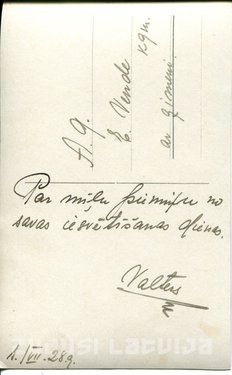 A. g.
E. Vende kgm.
ar ģimeni.
Par mīļu piemiņu no
savas iesvētīšanas dienas.
Valters
1./VII. 28.g.